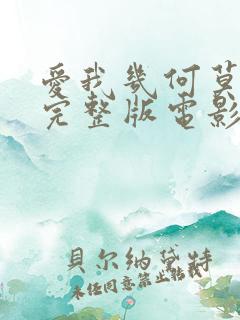 愛我幾何莫
完整版電影
貝尔纳黛特
未经同意禁止转载